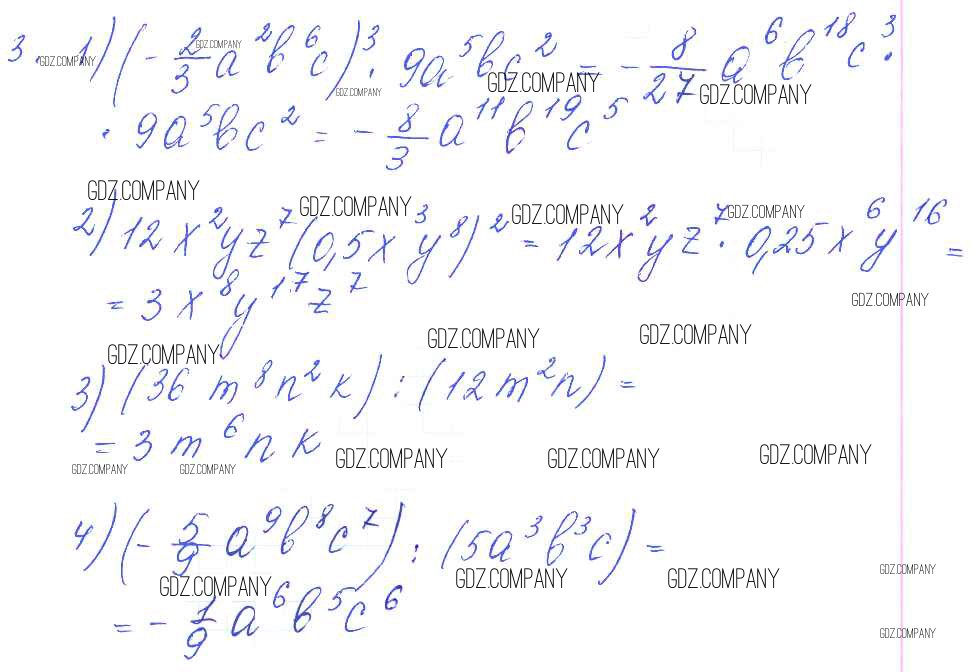 3. 1) (-2/3 a²b⁶c)³ · 9a⁵bc² = -8/27 a⁶b¹⁸c³ ·
· 9a⁵bc² = -8/3 a¹¹b¹⁹c⁵
2) 12x²yz⁷(0,5x³y⁸)² = 12x²yz⁷ · 0,25x⁶y¹⁶ =
= 3x⁸y¹⁷z⁷
3) (36m⁸n²k) : (12m²n) =
= 3m⁶nk
4) (-5/9 a⁹b⁸c⁷) : (5a³b³c) =
= -1/9 a⁶b⁵c⁶
GDZ.COMPANY GDZ.COMPANY
GDZ.COMPANY GDZ.COMPANY GDZ.COMPANY
GDZ.COMPANY GDZ.COMPANY GDZ.COMPANY GDZ.COMPANY
GDZ.COMPANY
GDZ.COMPANY GDZ.COMPANY GDZ.COMPANY
GDZ.COMPANY GDZ.COMPANY GDZ.COMPANY GDZ.COMPANY GDZ.COMPANY
GDZ.COMPANY GDZ.COMPANY GDZ.COMPANY GDZ.COMPANY
GDZ.COMPANY